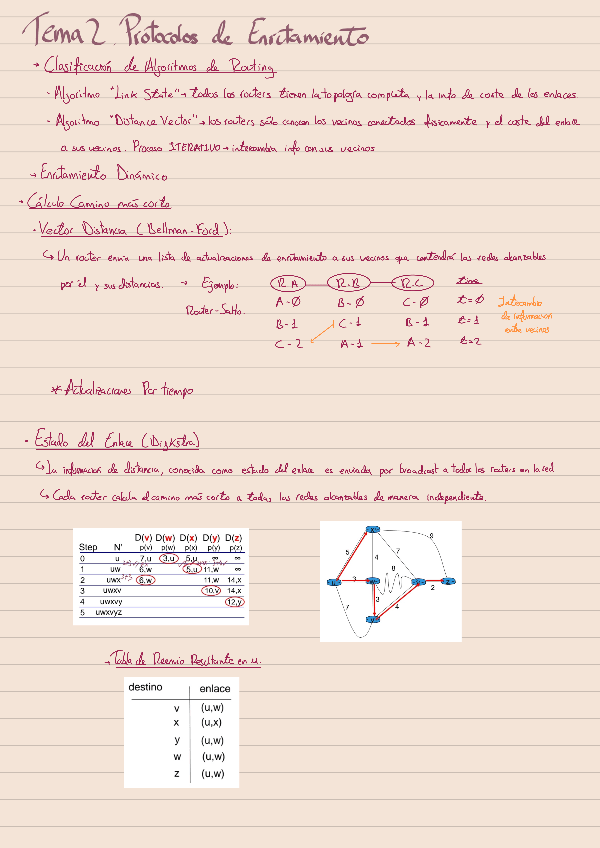 Tema 2. Protocolos de Enrutamiento
→ Clasificación de Algoritmos de Routing
- Algoritmo "Link State" → todos los routers tienen la topología completa y la info de coste de los enlaces
- Algoritmo "Distance Vector" → los routers sólo conocen los vecinos conectados físicamente y el coste del enlace
a sus vecinos. Proceso ITERATIVO → intercambia info con sus vecinos
→ Enrutamiento Dinámico
→ Cálculo Camino más corto
- Vector Distancia (Bellman-Ford):
↳ Un router envía una lista de actualizaciones de enrutamiento a sus vecinos que contendrá las redes alcanzables
por él y sus distancias. → Ejemplo:
Router-Salto.
R.A R.B R.C time
A-Ø B-Ø C-Ø t=Ø
B-1 C-1 B-1 t=1
C-2 A-1 → A-2 t=2
Intercambio
de informacion
entre vecinos
* Actualizaciones Por tiempo
- Estado del Enlace (Dijkstra)
↳ La informacion de distancia, conocida como estado del enlace es enviada por broadcast a todos los routers en la red
↳ Cada router calcula el camino más corto a todas las redes alcanzables de manera independiente.
D(v) D(w) D(x) D(y) D(z)
Step N' p(v) p(w) p(x) p(y) p(z)
0 u 7,u 3,u 5,u ∞ ∞
1 uw 6,w 5,u 11,w ∞
2 uwx 6,w 11,w 14,x
3 uwxv 10,v 14,x
4 uwxvy 12,y
5 uwxvyz
x
9
5
4
7
8
u
3
w
y
2
z
3
7
4
v
→ Tabla de Reenvio Resultante en u.
destino enlace
v (u,w)
x (u,x)
y (u,w)
w (u,w)
z (u,w)